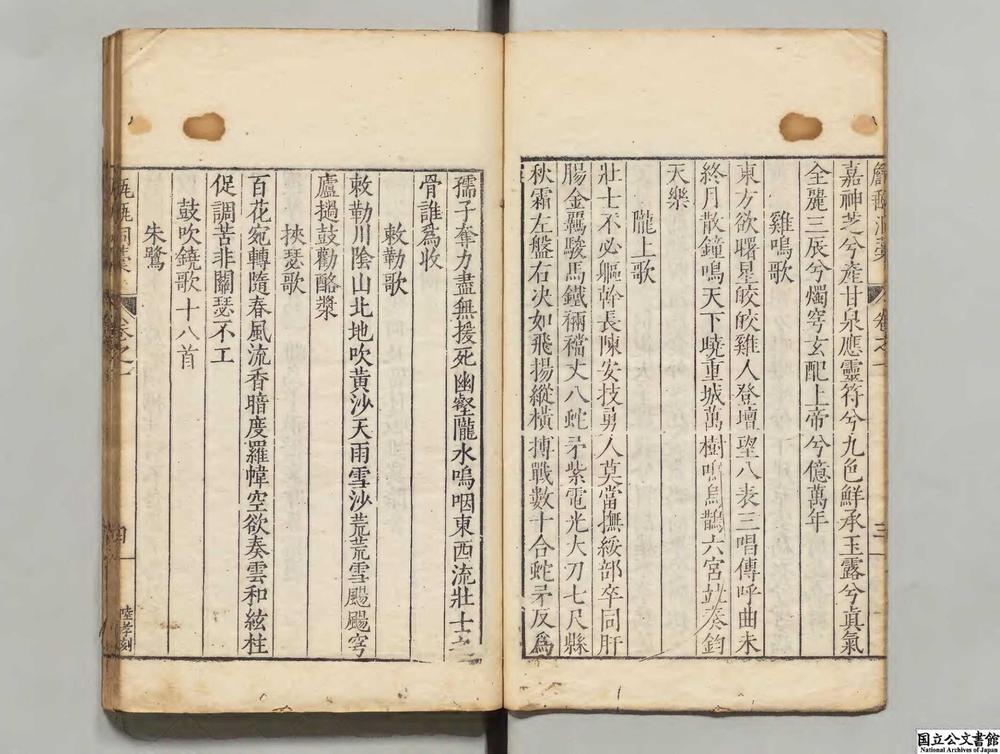 嘉神芝兮產甘泉應靈符兮九色鮮承玉露兮真氣
全麗三辰兮燭穹玄配上帝兮億萬年
雞鳴歌
東方欲曙星皎皎雞人登壇望八表三唱傳呼曲未
終月散鐘鳴天下曉重城萬樹鳴烏鵲六宮竝奏鈞
天樂
隴上歌
壯士不必軀幹長陳安技勇人莫當撫綏部卒同肝
腸金羈駿馬鐵裲襠丈八蛇矛紫電光大刀七尺縣
秋霜左盤右決如飛揚縱橫搏戰數十合蛇矛反爲
卷之一
三
孺子奪力盡無援死幽壑隴水嗚咽東西流壯士之
骨誰爲收
敕勒歌
敕勒川陰山北地吹黄沙天雨雪沙荒荒雪颺颺穹
廬撾鼓勸酪漿
挾瑟歌
百花宛轉隨春風流香暗度羅幃空欲奏雲和絃柱
促調苦非關瑟不工
鼓吹鐃歌十八首
朱鷺
甔甀洞藁
卷之一
四
陸孝刻
国立公文書館
National Archives of Japan